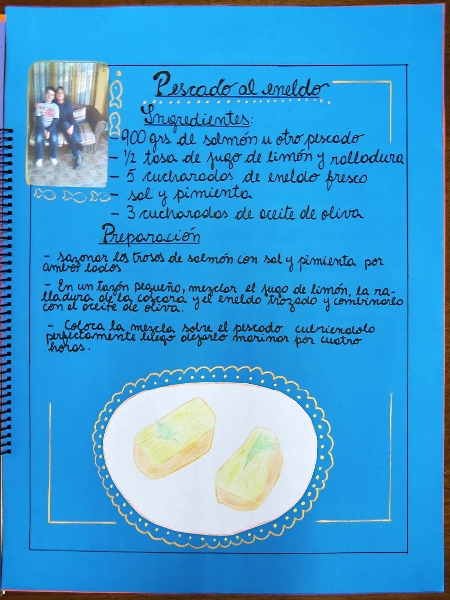 Pescado al eneldo
Ingredientes:
- 900 grs de salmón u otro pescado
- 1/2 tasa de jugo de limón y ralladura
- 5 cucharadas de eneldo fresco
- sal y pimienta
- 3 cucharadas de aceite de oliva
Preparación
- sazonar los trosos de salmón con sal y pimienta por
ambos lados
- En un tazón pequeño, mezclar el jugo de limón, la ra-
lladura de la cascara y el eneldo trozado y combinarlo
con el aceite de oliva.
- Coloca la mezcla sobre el pescado cubriendolo
perfectamente luego dejarlo marinar por cuatro
horas.